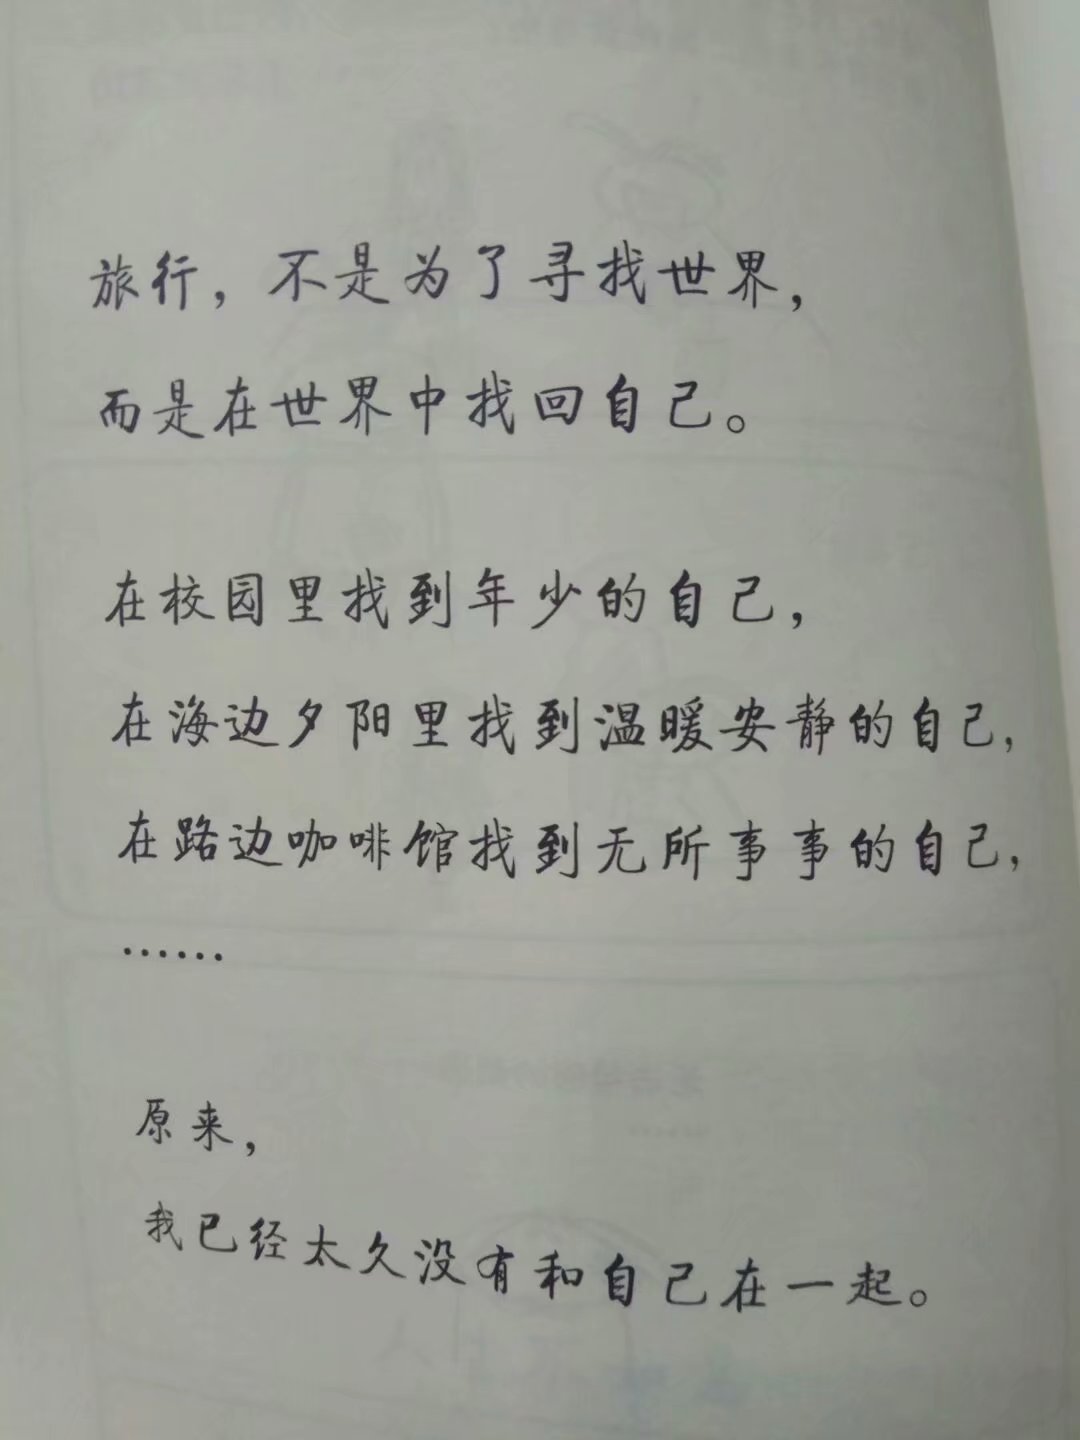 旅行，不是为了寻找世界，
而是在世界中找回自己。
在校园里找到年少的自己，
在海边夕阳里找到温暖安静的自己，
在路边咖啡馆找到无所事事的自己，
……
原来，
我已经太久没有和自己在一起。